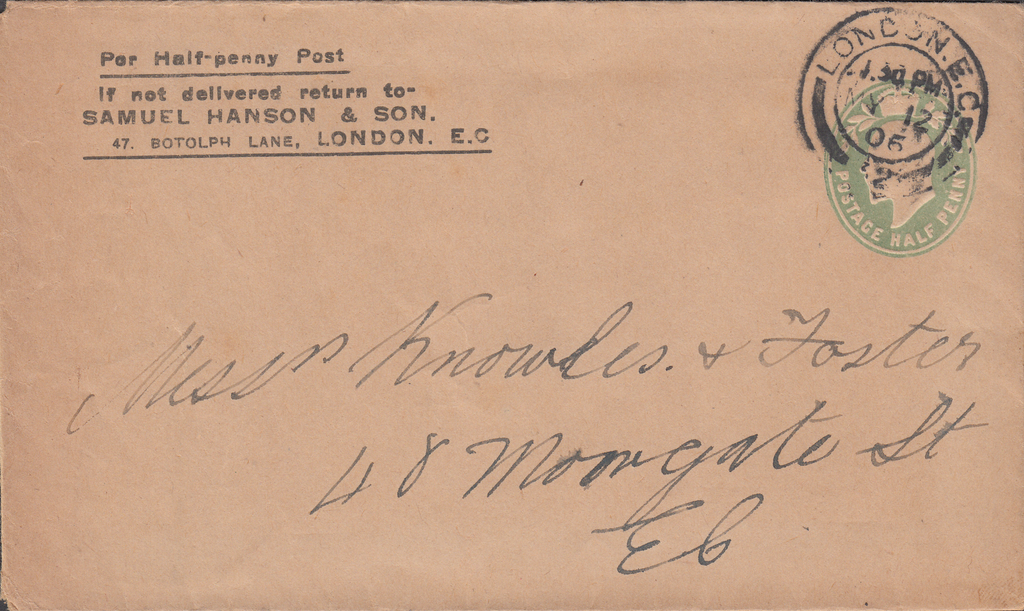 Per Half-penny Post
If not delivered return to-
SAMUEL HANSON & SON.
47. BOTOLPH LANE, LONDON. E.C
LONDON. E.C.
1.30 PM
12
06
POSTAGE HALF PENNY
Messrs Knowles. & Foster
48 Moorgate St
EC